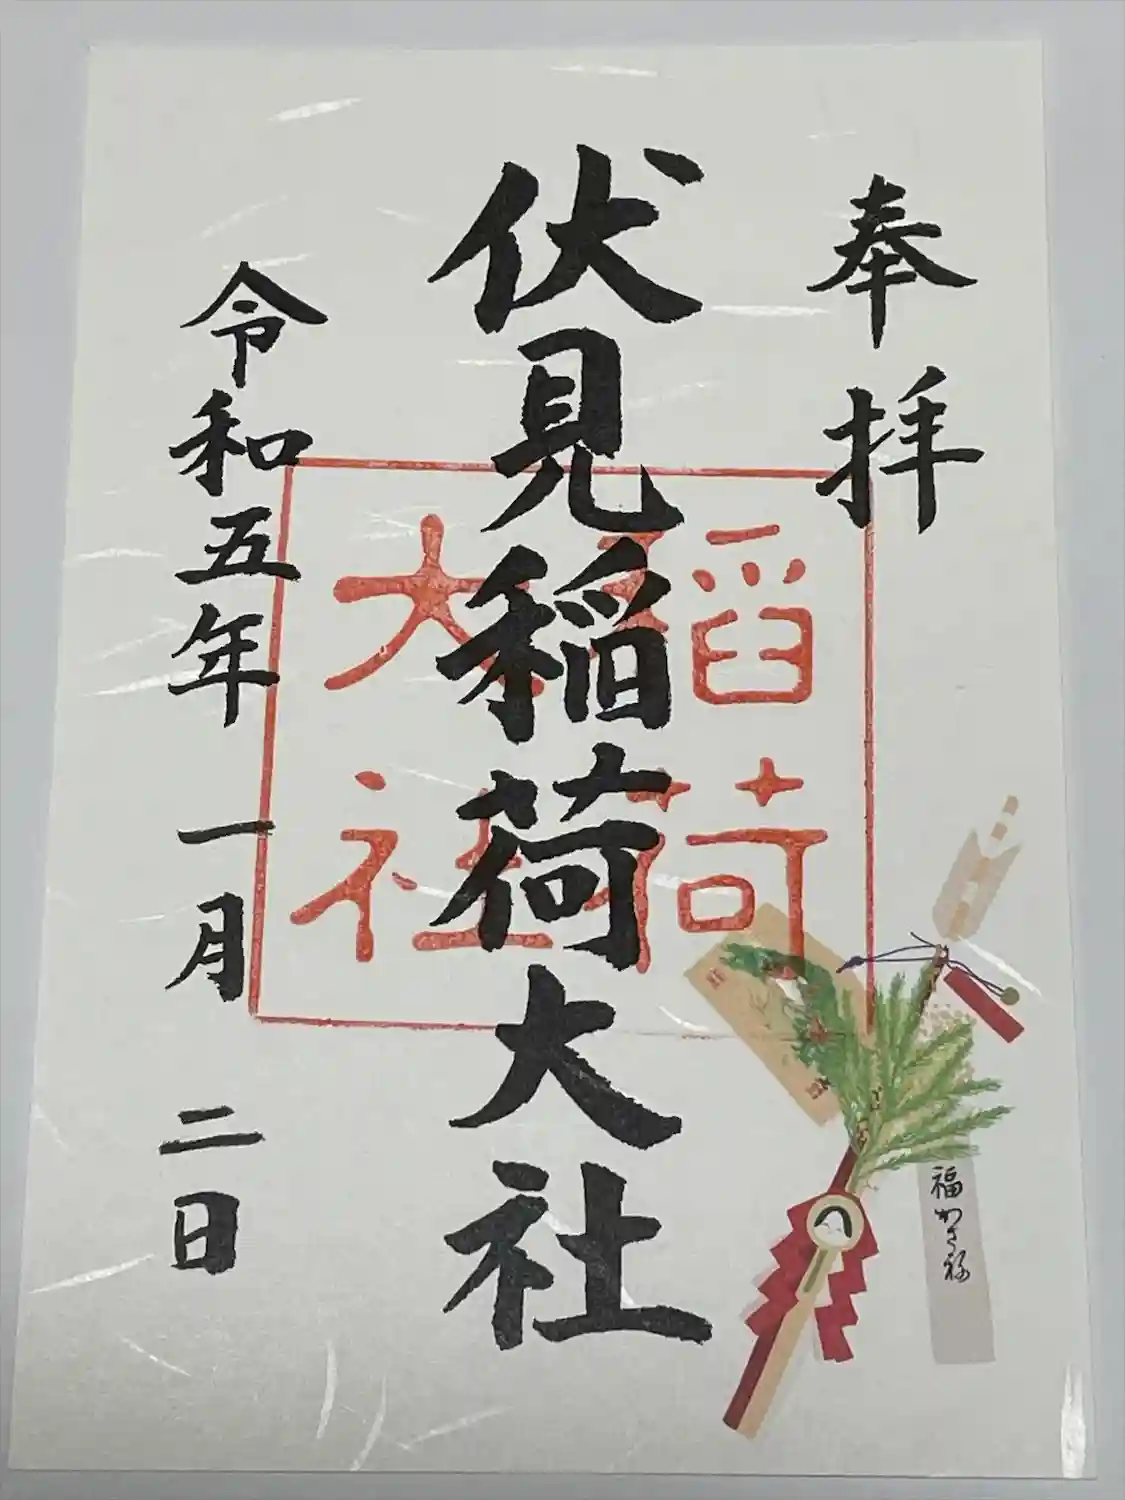 奉拝
伏見稲荷大社
令和五年 一月 二日
稲荷
大社
福かさね